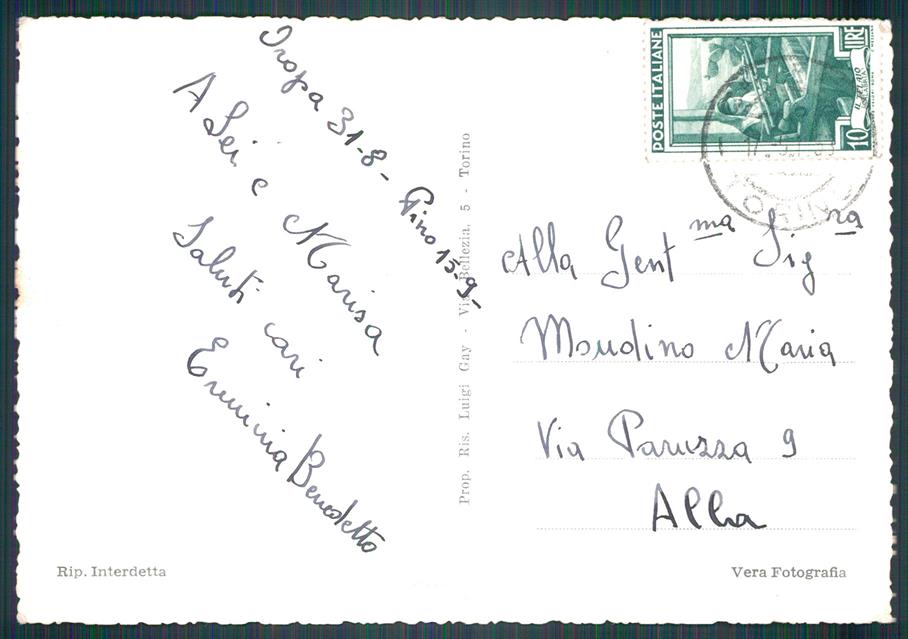 Oropa 31-8- Pino 15-9-
A Lei e Marisa
Saluti cari
Erminia Benedetto
Prop. Ris. Luigi Gay - Via Bellezia, 5 - Torino
Rip. Interdetta
POSTE ITALIANE
LIRE
10
IL TELAIO
CALABRIA
TORINO
Alla Gent ma Sig ra
Mondino Maria
Via Paruzza 9
Alba
Vera Fotografia